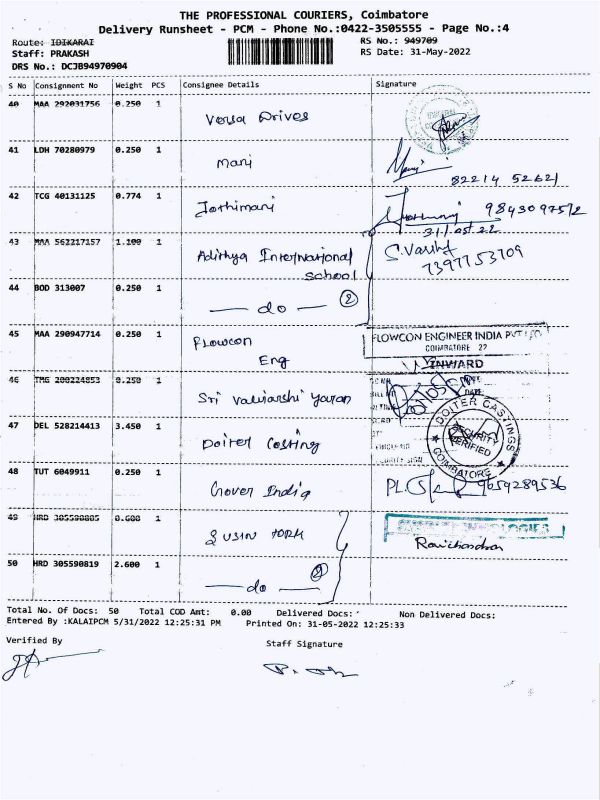 THE PROFESSIONAL COURIERS, Coimbatore
Delivery Runsheet - PCM - Phone No.:0422-3505555 - Page No.:4
Route: IDIKARAI
RS No.: 949709
Staff: PRAKASH
RS Date: 31-May-2022
DRS No.: DCJB94970904
S No Consignment No Weight PCS Consignee Details Signature
40 MAA 292031756 0.250 1 Versa Drives
41 LDH 70280979 0.250 1 Mani
82214 52621
42 TCG 40131125 0.774 1 Jothimani
9843097512
31/05/22
43 MAA 562217157 1.100 1 Adithya International School
7397753709
44 BOD 313007 0.250 1 — do — 2
45 MAA 290947714 0.250 1 Flowcon Eng
FLOWCON ENGINEER INDIA PVT LTD
COIMBATORE 22
INWARD
46 TMG 200224853 0.250 1 Sri
47 DEL 528214413 3.450 1 Doiter Casting
DOITER CASTINGS
SECURITY VERIFIED
COIMBATORE
48 TUT 6049911 0.250 1 India
9659289536
49 HRD 305590805 0.600 1
Ravichandran
50 HRD 305590819 2.600 1 — do — 2
Total No. Of Docs: 50 Total COD Amt: 0.00 Delivered Docs: Non Delivered Docs:
Entered By :KALAIPCM 5/31/2022 12:25:31 PM Printed On: 31-05-2022 12:25:33
Verified By
Staff Signature